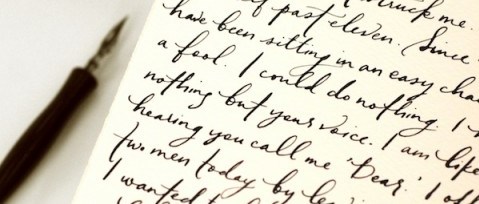 struck me.
half past eleven. Since
have been sitting in an easy chair
a fool. I could do nothing. I
nothing but your voice. I am like
hearing you call me 'Dear.' I
two men today by
I wanted